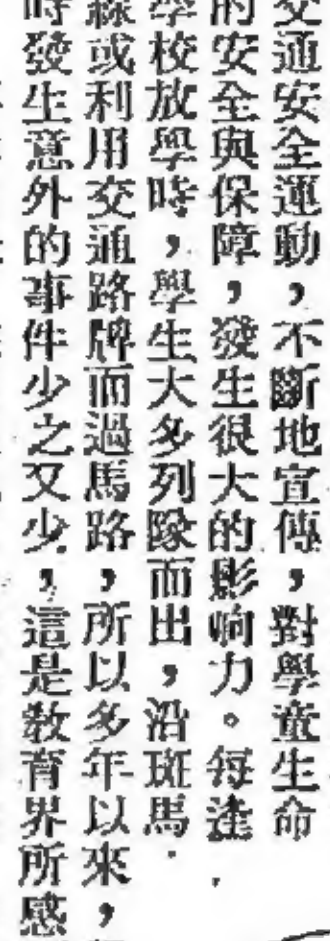 交通安全運動，不斷地宣傳，對學童生命
的安全與保障，發生很大的影响力。每逢
學校放學時，學生大多列隊而出，沿斑馬
線或利用交通路牌而過馬路，所以多年以來，
時發生意外的事件少之又少，這是教育界所感